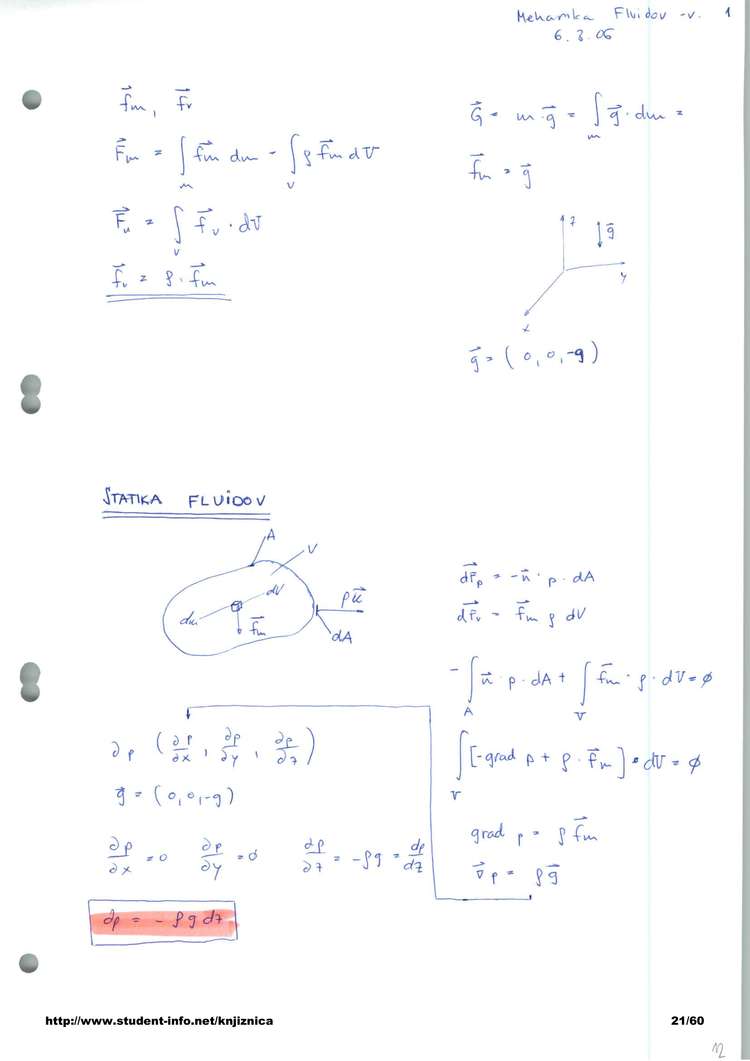 Mehanika Fluidov -v. 1
6. 3. 06
f⃗m, f⃗v
F⃗m = ∫m f⃗m dm - ∫v ρ f⃗m dV
F⃗v = ∫v f⃗v · dV
f⃗v = ρ · f⃗m
G⃗ = m · g⃗ = ∫m g⃗ · dm =
f⃗m = g⃗
z
g⃗
y
x
g⃗ = (0, 0, -g)
STATIKA FLUIDOV
A
V
dV
dm
f⃗m
pn⃗
dA
dF⃗p = -n⃗ · p · dA
dF⃗v = f⃗m ρ dV
-∫A n⃗ · p · dA + ∫V f⃗m · ρ · dV = ϕ
∫V [-grad p + ρ · f⃗m] · dV = ϕ
grad p = ρ f⃗m
∇⃗p = ρg⃗
∂p (∂p/∂x, ∂p/∂y, ∂p/∂z)
g⃗ = (0, 0, -g)
∂p/∂x = 0 ∂p/∂y = ϕ ∂p/∂z = -ρg = dp/dz
dp = - ρ g dz
http://www.student-info.net/knjiznica
21/60
12